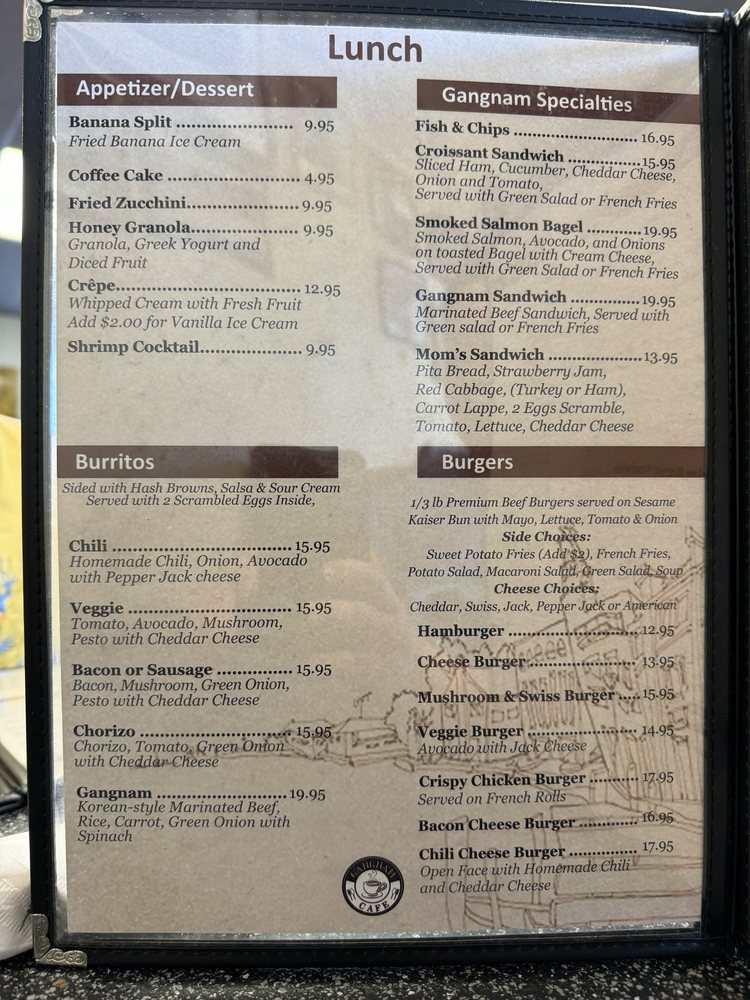 Lunch
Appetizer/Dessert
Banana Split ........................ 9.95
Fried Banana Ice Cream
Coffee Cake ........................... 4.95
Fried Zucchini....................... 9.95
Honey Granola...................... 9.95
Granola, Greek Yogurt and
Diced Fruit
Crêpe...................................... 12.95
Whipped Cream with Fresh Fruit
Add $2.00 for Vanilla Ice Cream
Shrimp Cocktail..................... 9.95
Burritos
Sided with Hash Browns, Salsa & Sour Cream
Served with 2 Scrambled Eggs Inside,
Chili .................................... 15.95
Homemade Chili, Onion, Avocado
with Pepper Jack cheese
Veggie ................................. 15.95
Tomato, Avocado, Mushroom,
Pesto with Cheddar Cheese
Bacon or Sausage ............... 15.95
Bacon, Mushroom, Green Onion,
Pesto with Cheddar Cheese
Chorizo ............................... 15.95
Chorizo, Tomato, Green Onion
with Cheddar Cheese
Gangnam ...........................19.95
Korean-style Marinated Beef,
Rice, Carrot, Green Onion with
Spinach
Gangnam Specialties
Fish & Chips ......................... 16.95
Croissant Sandwich ...............15.95
Sliced Ham, Cucumber, Cheddar Cheese,
Onion and Tomato,
Served with Green Salad or French Fries
Smoked Salmon Bagel ...........19.95
Smoked Salmon, Avocado, and Onions
on toasted Bagel with Cream Cheese,
Served with Green Salad or French Fries
Gangnam Sandwich ..............19.95
Marinated Beef Sandwich, Served with
Green salad or French Fries
Mom's Sandwich ...................13.95
Pita Bread, Strawberry Jam,
Red Cabbage, (Turkey or Ham),
Carrot Lappe, 2 Eggs Scramble,
Tomato, Lettuce, Cheddar Cheese
Burgers
1/3 lb Premium Beef Burgers served on Sesame
Kaiser Bun with Mayo, Lettuce, Tomato & Onion
Side Choices:
Sweet Potato Fries (Add $2), French Fries,
Potato Salad, Macaroni Salad, Green Salad, Soup
Cheese Choices:
Cheddar, Swiss, Jack, Pepper Jack or American
Hamburger .......................... 12.95
Cheese Burger...................... 13.95
Mushroom & Swiss Burger .....15.95
Veggie Burger ...................... 14.95
Avocado with Jack Cheese
Crispy Chicken Burger .......... 17.95
Served on French Rolls
Bacon Cheese Burger............ 16.95
Chili Cheese Burger .............. 17.95
Open Face with Homemade Chili
and Cheddar Cheese
GANGNAM
CAFE